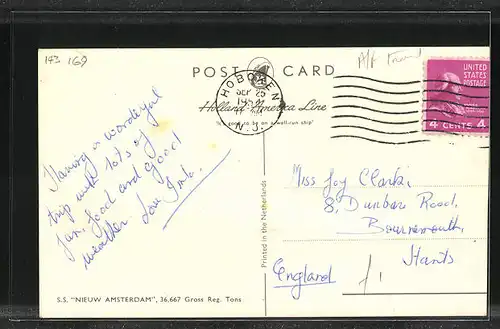 143 169
POST CARD
HOBOKEN
SEP 25
N. J.
Holland-America Line
'It's good to be on a well-run ship'
UNITED
STATES
POSTAGE
4 CENTS 4
Having a wonderful
trip with lots of
fun, food and good
weather. Love
Miss Joy Clark,
8, Dunbar Road,
Bournemouth,
Hants
England
Printed in the Netherlands
S.S. "NIEUW AMSTERDAM", 36,667 Gross Reg. Tons